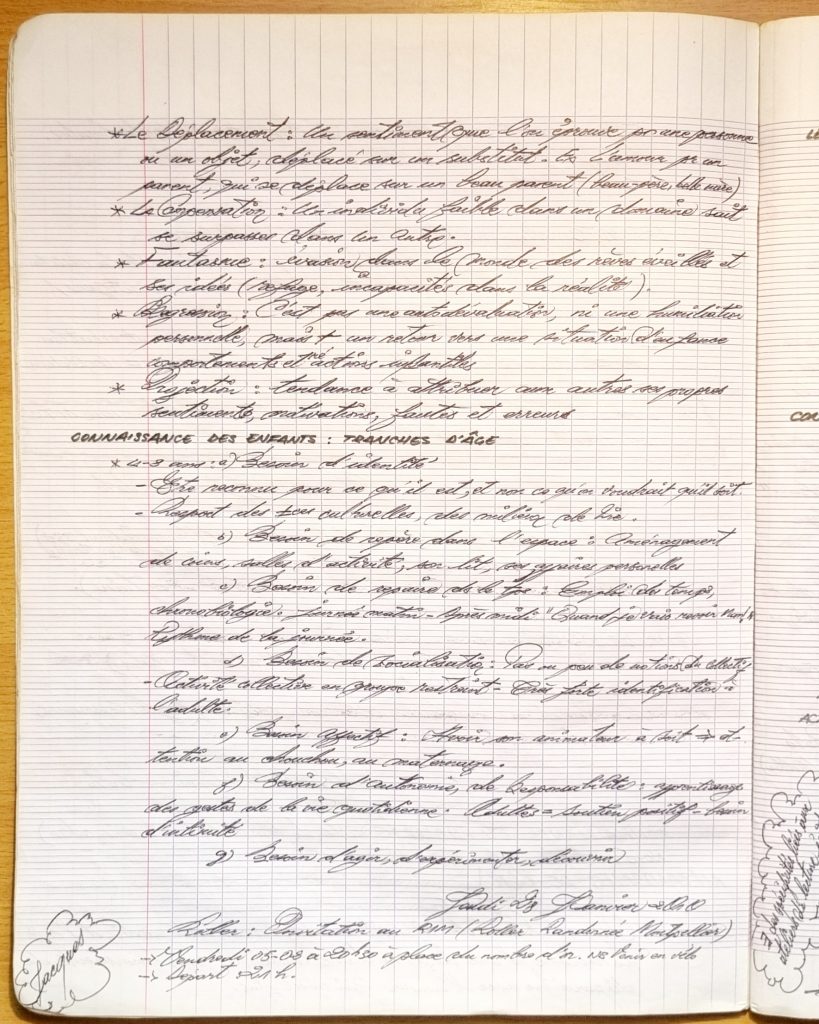 * Le Déplacement : Un sentiment que l'on éprouve pr une personne
ou un objet, déplacé sur un substitut. Ex L'amour pr un
parent, qui se déplace sur un beau parent (beau-père, belle mère)
* La Compensation : Un individu faible dans un domaine sait
se surpasser dans un autre.
* Fantasme : évasion dans le monde des rêves éveillés et
ses idées (refuge, incapacités dans la réalité).
* Régression : C'est pas une autodévaluation, ni une humiliation
personnelle, mais + un retour vers une situation d'enfance
comportements et réactions infantiles
* Projection : tendance à attribuer aux autres ses propres
sentiments, motivations, fautes et erreurs
CONNAISSANCE DES ENFANTS : TRANCHES D'ÂGE
* 4-8 ans : a) Besoin d'identité
- Etre reconnu pour ce qu'il est, et non ce qu'on voudrait qu'il soit.
- Respect des ≠ces culturelles, des milieux de vie.
b) Besoin de repère dans l'espace : Aménagement
de coins, salles d'activité, son lit, ses affaires personelles
c) Besoin de repaire ds le tps : Emploi des temps,
chronobiologie. Journée matin - Après midi "Quand je vais revoir
Rythme de la journée.
d) Besoin de socialisation : Pas ou peu de notions du collectif
- Activité collective en groupe restreint - Très forte identification à
l'adulte.
e) Besoin affectif : Avoir son animateur à soit ⇒ at-
tention au chouchou, au maternage.
f) Besoin d'autonomie, de responsabilité : apprentissage
des gestes de la vie quotidienne. Adultes = soutien positif - besoin
d'intimité
g) Besoin d'agir, d'expérimenter, découvrir
Jeudi 28 Janvier 2010
Roller : Invitation au RIM (Roller Randonnée Montpellier)
-> Vendredi 05-03 à 20h30 à place du nombre d'or. NE venir en vélo
-> Départ 21 h.
Jacques